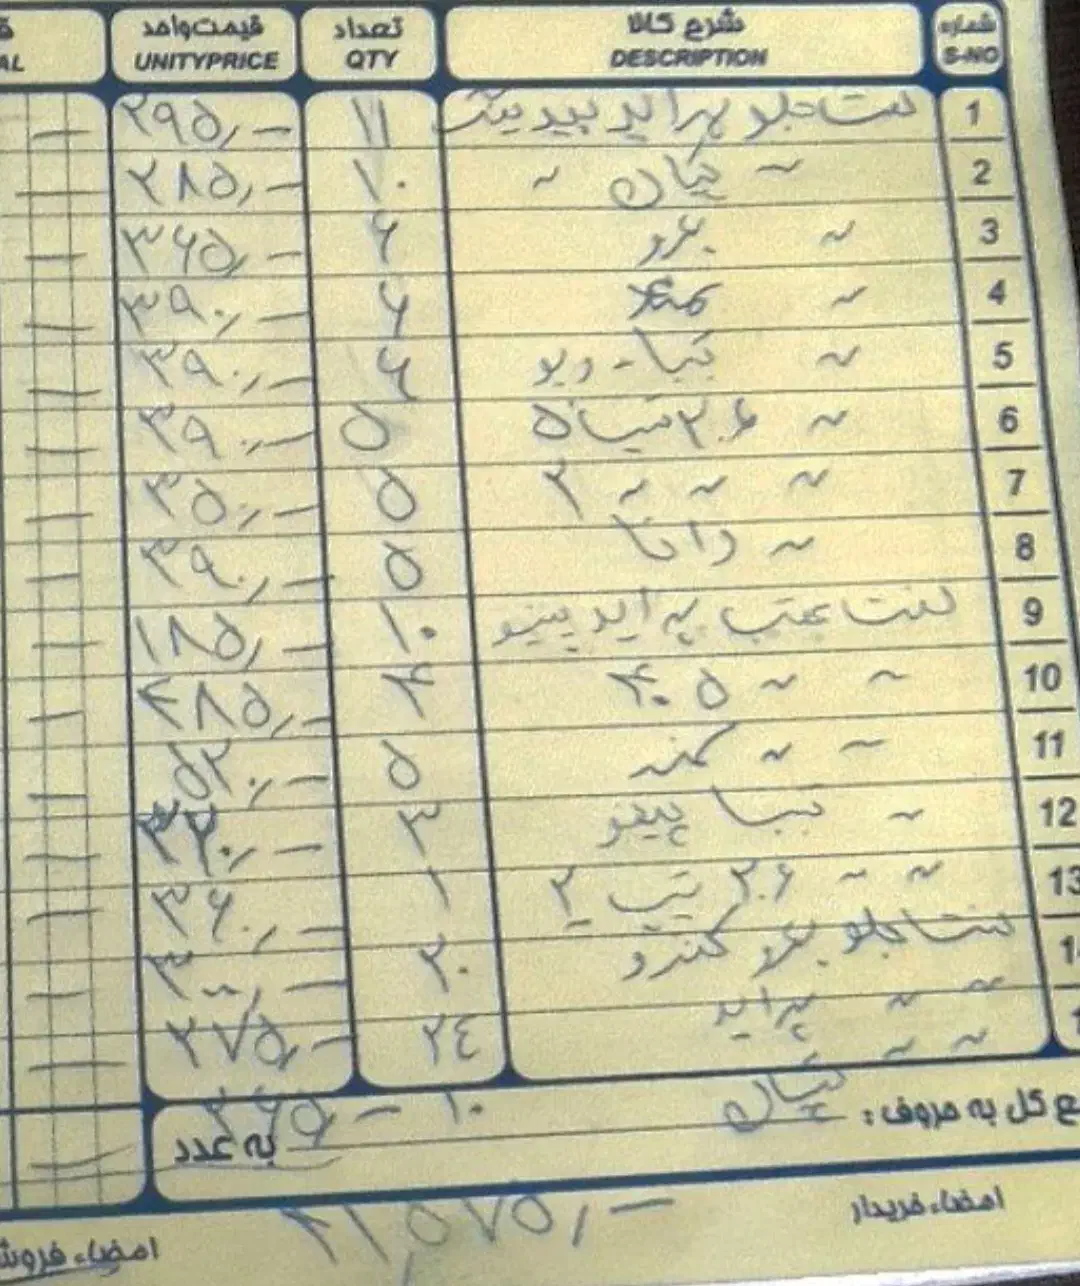 شماره S-NO شرح کالا DESCRIPTION تعداد QTY قیمت‌واحد UNITYPRICE AL
1 لنت جلو پراید ۱۱ ۲۹۵٫-
2 ~ تیکان ~ ۱۰ ۲۸۵٫-
3 ~ ۶ ۳۶۵٫-
4 ~ ۶ ۳۹۰٫-
5 ~ تیبا - ریو ۶ ۳۹۰٫-
6 ~ ۲۰۶ تیپ ۵ ۵ ۳۹۰٫-
7 ~ ~ ~ ۲ ۵ ۳۵۰٫-
8 ~ دانا ۵ ۳۹۰٫-
9 لنت عقب پراید ۱۰ ۱۸۵٫-
10 ~ ~ ۴۰۵ ۴ ۴۸۵٫-
11 ~ ~ سمند ۵ ۵۲۰٫-
12 ~ تیبا ۳ ۳۲۰٫-
13 ~ ~ ۲۰۶ تیپ ۲ ۱ ۳۶۰٫-
لنت جلو ۲۰ ۳۰۰٫-
~ ~ پراید ۲۴ ۲۷۵٫-
~ ~ ۱۰ ۲۶۵٫-
ع کل به حروف: به عدد
امضاء خریدار ۲۱٫۵۷۵٫-
امضاء فروش